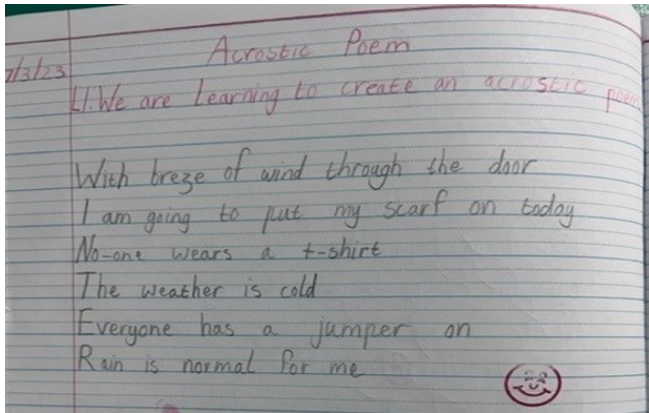 Acrostic Poem
7/3/23
LI. We are learning to create an acrostic poem
With breze of wind through the door
I am going to put my scarf on today
No-one wears a t-shirt
The weather is cold
Everyone has a jumper on
Rain is normal for me